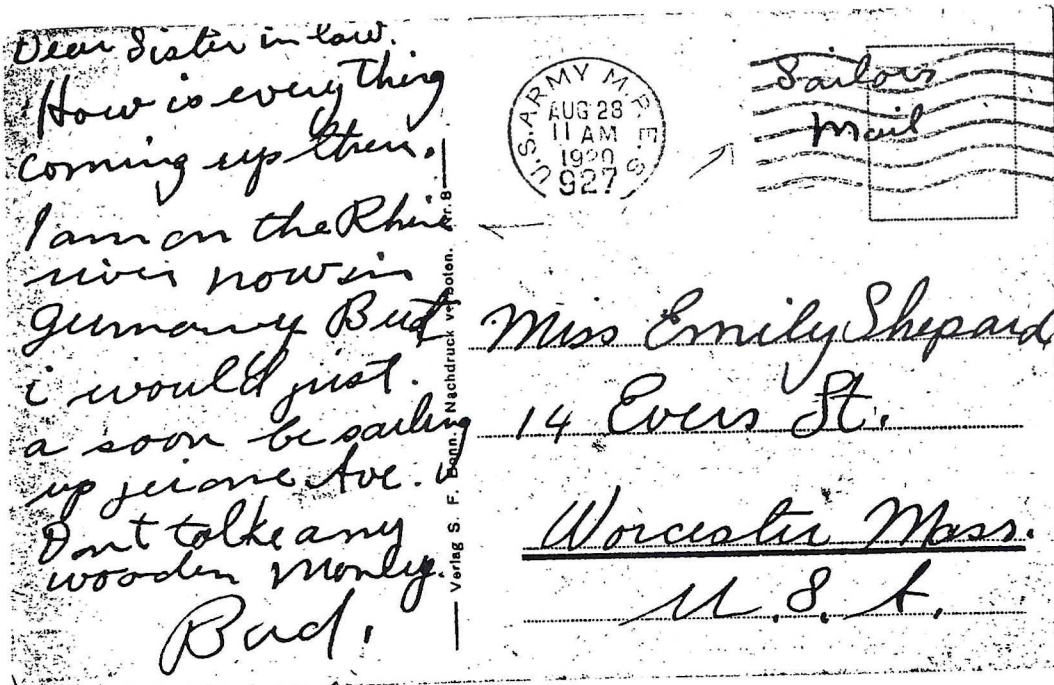 Dear Sister in law.
How is everything
coming up there.
I am on the Rhine
river now in
germany But
i would just.
a soon be sailing
up Ave.
Dont talke any
wooden Monley.
Bud.
Verlag S. F. Bonn. Nachdruck verboten. Nr. 8
U.S. ARMY M.P.E.S.
AUG 28
11 AM
1920
927
Sailors
Mail
Miss Emily Shepard
14 Evers St.
Worcester Mass.
U. S. A.